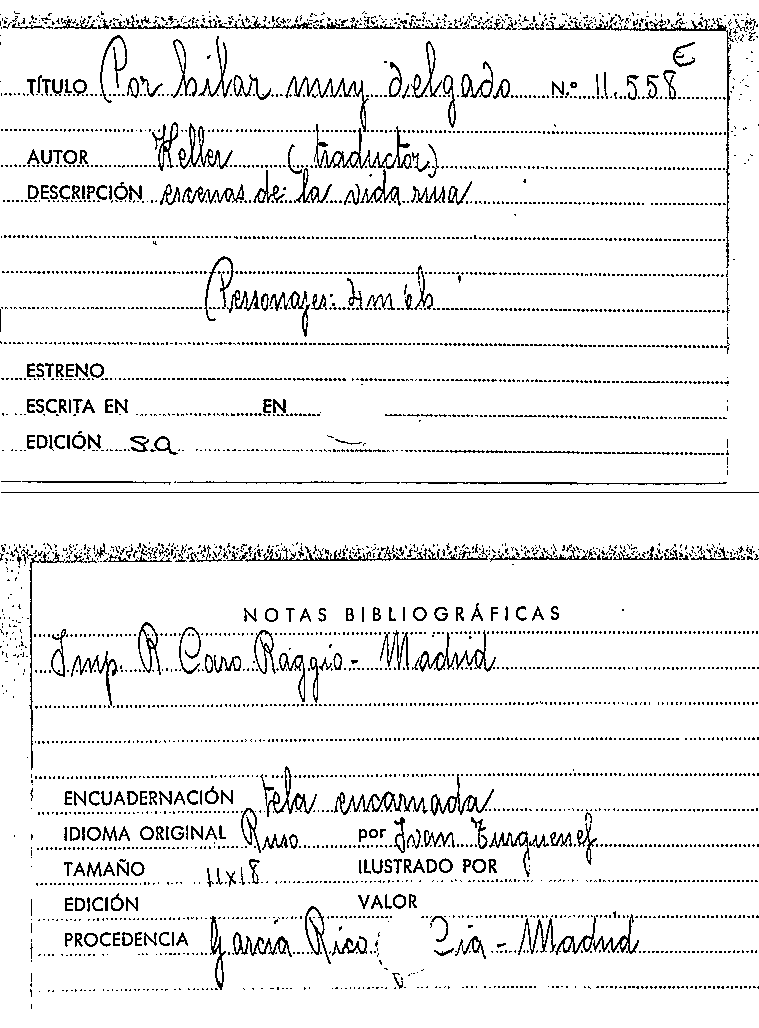 TÍTULO Por hilar muy delgado N.º 11.558 E
AUTOR Heller (traductor)
DESCRIPCIÓN escenas de la vida rusa
Personajes: 4m 6h
ESTRENO
ESCRITA EN EN
EDICIÓN s.a
NOTAS BIBLIOGRÁFICAS
Imp. R Caro Raggio - Madrid
ENCUADERNACIÓN tela encarnada
IDIOMA ORIGINAL Ruso por Ivan Turguenef
TAMAÑO 11x18 ILUSTRADO POR
EDICIÓN VALOR
PROCEDENCIA García Rico Cia - Madrid